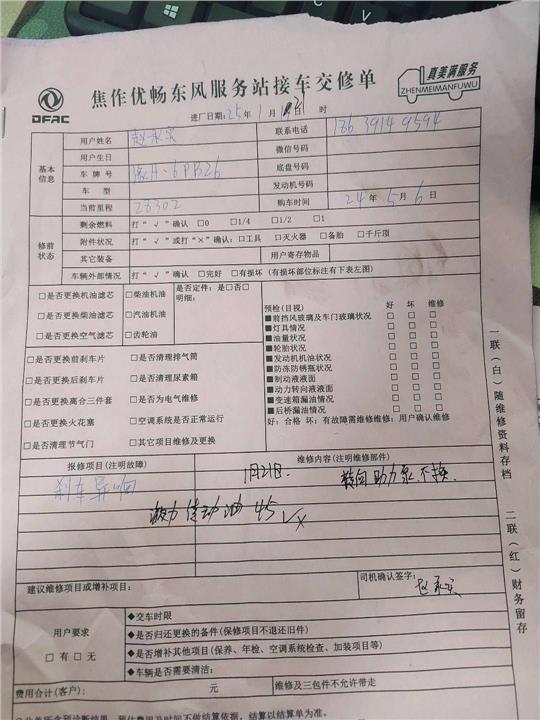 DFAC
焦作优畅东风服务站接车交修单
真美满服务
ZHENMEIMANFUWU
进厂日期:25年1月21日 时
基本信息
用户姓名 赵永安 联系电话 18639149594
用户生日 微信号码
车牌号 豫H·6PB26 底盘号码
车型 发动机号码
当前里程 28302 购车时间 24年5月6日
修前状态
剩余燃料 打“√”确认 □0 □1/4 □1/2 □1
附件状况 打“√”或打“×”确认:□工具 □灭火器 □备胎 □千斤顶
其它装备 用户寄存物品
车辆外部情况 打“√”确认 □完好 □有损坏(有损坏部位标注有下表左图)
□是否更换机油滤芯 □柴油机油 是否定件:是□否□
明细:
□是否更换柴油滤芯 □汽油机油
□是否更换空气滤芯 □齿轮油
□是否更换前刹车片 □是否清理排气筒
□是否更换后刹车片 □是否清理尿素箱
□是否更换离合三件套 □是否为电气维修
□是否更换火花塞 □空调系统是否正常运行
□是否清理节气门 □其它项目维修及更换
预检(目视) 好 坏 维修
■前挡风玻璃及车门玻璃状况 □ □ □
■灯具情况 □ □ □
■油量状况 □ □ □
■轮胎状况 □ □ □
■发动机机油状况 □ □ □
■防冻防锈瓶状况 □ □ □
■制动液液面 □ □ □
■动力转向液液面 □ □ □
■变速箱漏油情况 □ □ □
■后桥漏油情况 □ □ □
好:合格 坏:有故障需维修维修:用户确认维修
报修项目(注明故障) 维修内容(注明维修部件)
刹车异响 1月21日. 转向助力泵不换.
液力传动油 45 √×
建议维修项目或增补项目: 司机确认签字: 赵永安
用户要求
□有□无
◆交车时限
◆是否归还更换的备件(保修项目不退还旧件)
◆是否增补其他项目(保养、年检、空调系统检查、加装项目等)
◆车辆是否需要清洁:
费用合计(客户): 元 维修及三包件不允许带走
预估费用及时间不做结算依据,结算以结算单为准。
一联(白)随维修资料存档
二联(红)财务留存